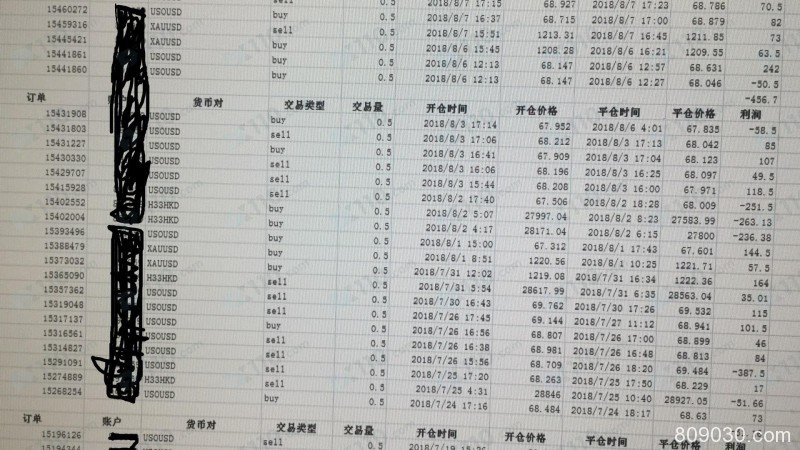 15460272 USOUSD buy 0.5 2018/8/7 16:37 68.715 2018/8/7 17:00 68.879 82
15459316 XAUUSD sell 0.5 2018/8/7 15:51 1213.31 2018/8/7 16:45 1211.85 73
15455421 XAUUSD buy 0.5 2018/8/6 15:45 1208.28 2018/8/6 16:21 1209.55 63.5
15441861 USOUSD buy 0.5 2018/8/6 12:13 68.147 2018/8/6 12:57 68.631 242
15441860 USOUSD buy 0.5 2018/8/6 12:13 68.147 2018/8/6 12:27 68.046 -50.5
-456.7
订单 货币对 交易类型 交易量 开仓时间 开仓价格 平仓时间 平仓价格 利润
15431908 USOUSD buy 0.5 2018/8/3 17:14 67.952 2018/8/6 4:01 67.835 -58.5
15431803 USOUSD sell 0.5 2018/8/3 17:06 68.212 2018/8/3 17:13 68.042 85
15431227 USOUSD buy 0.5 2018/8/3 16:41 67.909 2018/8/3 17:04 68.123 107
15430330 USOUSD sell 0.5 2018/8/3 16:06 68.196 2018/8/3 16:25 68.097 49.5
15429707 USOUSD sell 0.5 2018/8/3 15:44 68.208 2018/8/3 16:00 67.971 118.5
15415928 USOUSD sell 0.5 2018/8/2 17:40 67.506 2018/8/2 18:28 68.009 -251.5
15402552 H33HKD buy 0.5 2018/8/2 5:07 27997.04 2018/8/2 8:23 27583.99 -263.13
15402004 H33HKD buy 0.5 2018/8/2 4:17 28171.04 2018/8/2 6:15 27800 -236.38
15393496 USOUSD buy 0.5 2018/8/1 15:00 67.312 2018/8/1 17:43 67.601 144.5
15388479 XAUUSD buy 0.5 2018/8/1 8:51 1220.56 2018/8/1 10:25 1221.71 57.5
15373032 XAUUSD buy 0.5 2018/7/31 12:02 1219.08 2018/7/31 16:34 1222.36 164
15365090 H33HKD sell 0.5 2018/7/31 5:54 28617.99 2018/7/31 6:35 28563.04 35.01
15357362 USOUSD sell 0.5 2018/7/30 16:43 69.762 2018/7/30 17:26 69.532 115
15319048 USOUSD sell 0.5 2018/7/26 17:45 69.144 2018/7/27 11:12 68.941 101.5
15317137 USOUSD buy 0.5 2018/7/26 16:56 68.807 2018/7/26 17:00 68.899 46
15316561 USOUSD sell 0.5 2018/7/26 16:38 68.981 2018/7/26 16:48 68.813 84
15314827 USOUSD sell 0.5 2018/7/26 15:56 68.709 2018/7/26 18:20 69.484 -387.5
15291091 USOUSD sell 0.5 2018/7/25 17:20 68.263 2018/7/25 17:50 68.229 17
15274889 H33HKD sell 0.5 2018/7/25 4:31 28846 2018/7/25 10:40 28927.05 -51.66
15268254 USOUSD buy 0.5 2018/7/24 17:16 68.484 2018/7/24 18:17 68.63 73
订单 账户 货币对 交易类型 交易量 开仓时间 开仓价格 平仓时间 平仓价格
15196126 USOUSD sell 0.5
809030.com